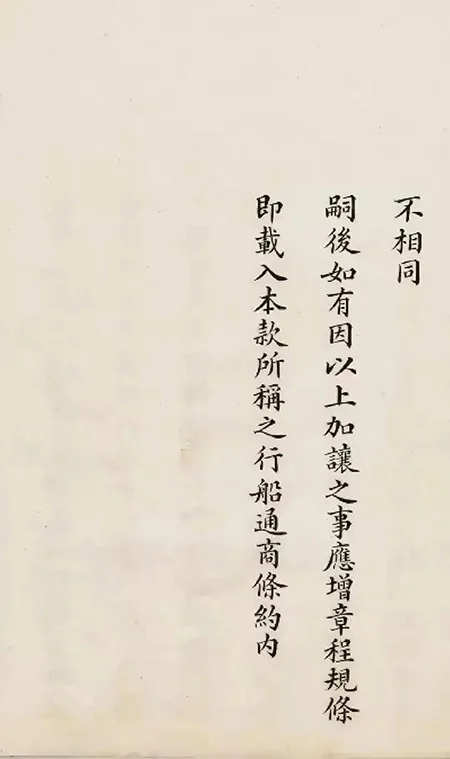 不相同
嗣後如有因以上加讓之事應增章程規條
即載入本款所稱之行船通商條約內